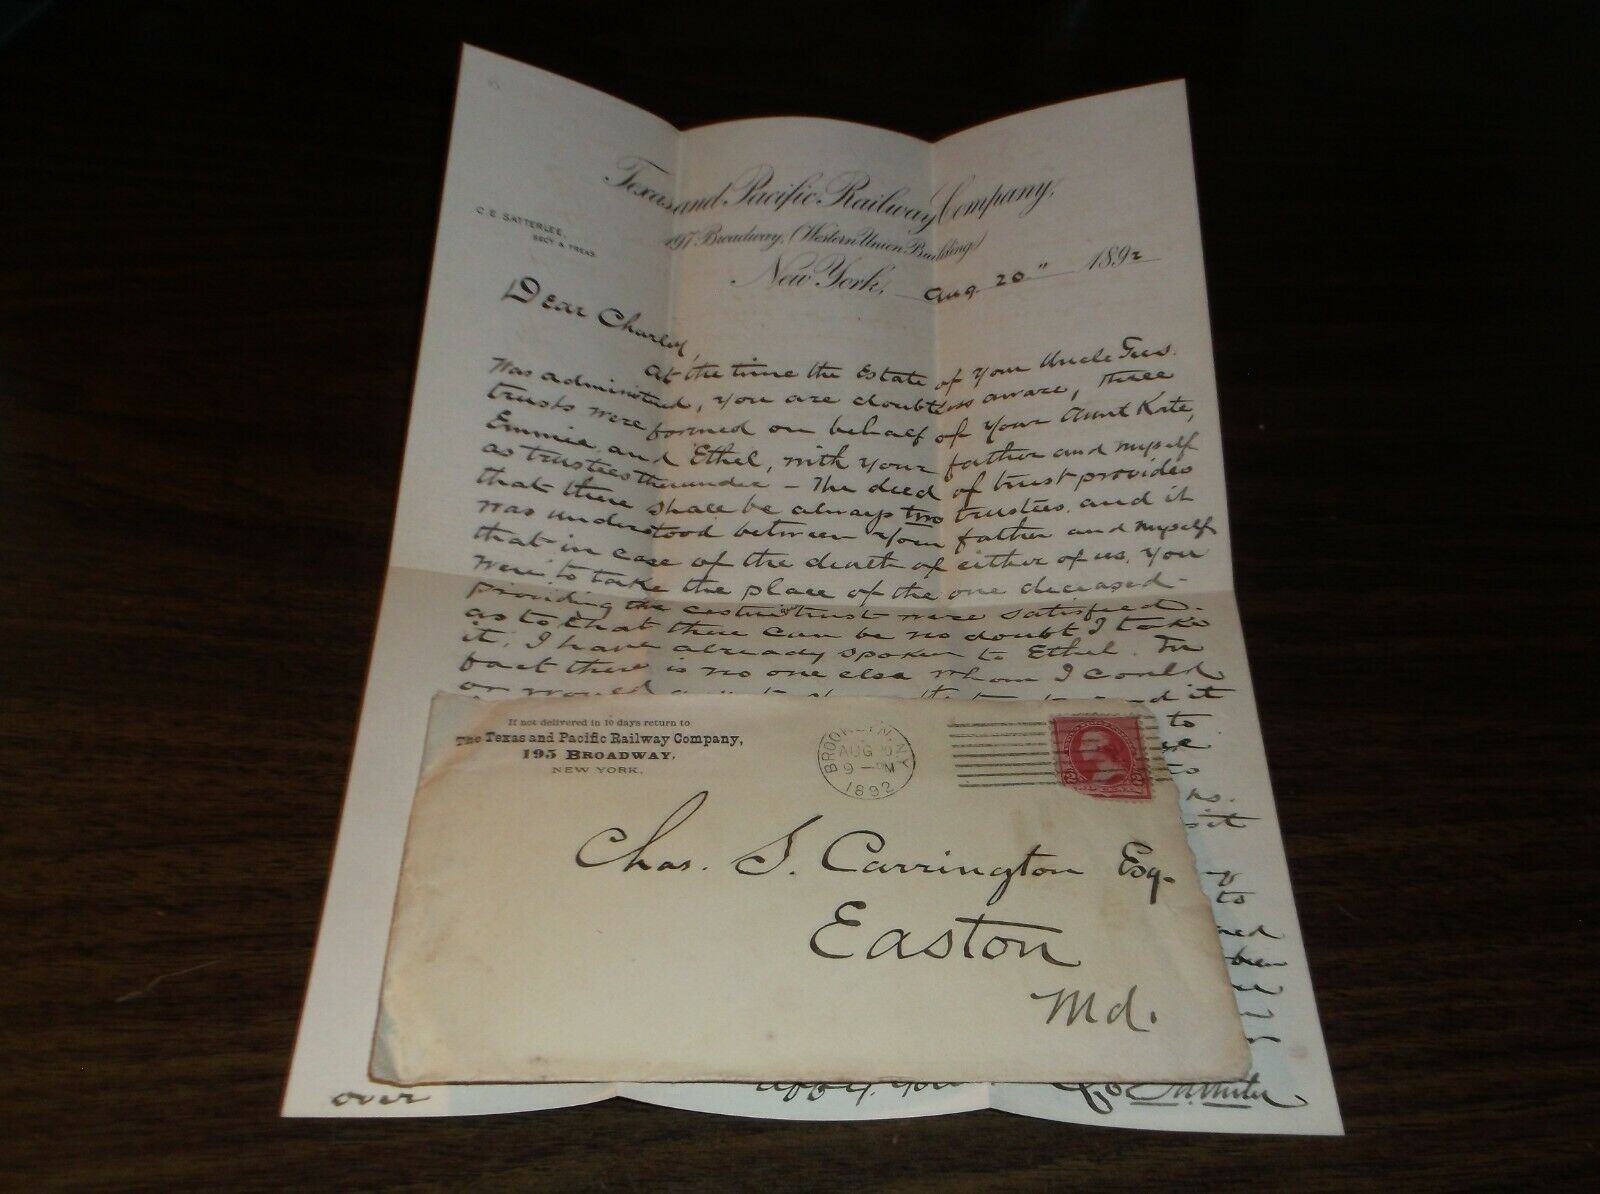 Texas and Pacific Railway Company,
C. E. SATTERLEE,
SECY & TREAS.
197 Broadway, (Western Union Building)
New York, Aug 20" 1892
Dear Charley,
At the time the Estate of your Uncle Gus.
was administered, you are doubtless aware, three
trusts were formed on behalf of your Aunt Kate,
Emmie and Ethel, with your father and myself
as trustees thereunder – The deed of trust provides
that there shall be always two trustees, and it
was understood between your father and myself
that in case of the death of either of us, you
were to take the place of the one deceased –
providing the cestui trust were satisfied –
as to that there can be no doubt I take
it, I have already spoken to Ethel. In
fact there is no one else whom I could
or would
it
to
to
been
over
If not delivered in 10 days return to
The Texas and Pacific Railway Company,
195 BROADWAY,
NEW YORK.
BROOKLYN, N.Y.
AUG 20
9 – PM
1892
Chas. S. Carrington Esq.
Easton
Md.